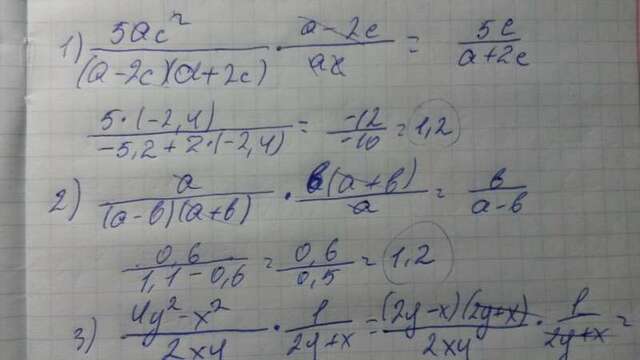 1) 5ac²/((a-2c)(a+2c)) · (a-2c)/(ac) = 5c/(a+2c)
5·(-2,4)/(-5,2+2·(-2,4)) = -12/-10 = 1,2
2) a/((a-b)(a+b)) · b(a+b)/a = b/(a-b)
0,6/(1,1-0,6) = 0,6/0,5 = 1,2
3) (4y²-x²)/(2xy) · 1/(2y+x) = (2y-x)(2y+x)/(2xy) · 1/(2y+x) =